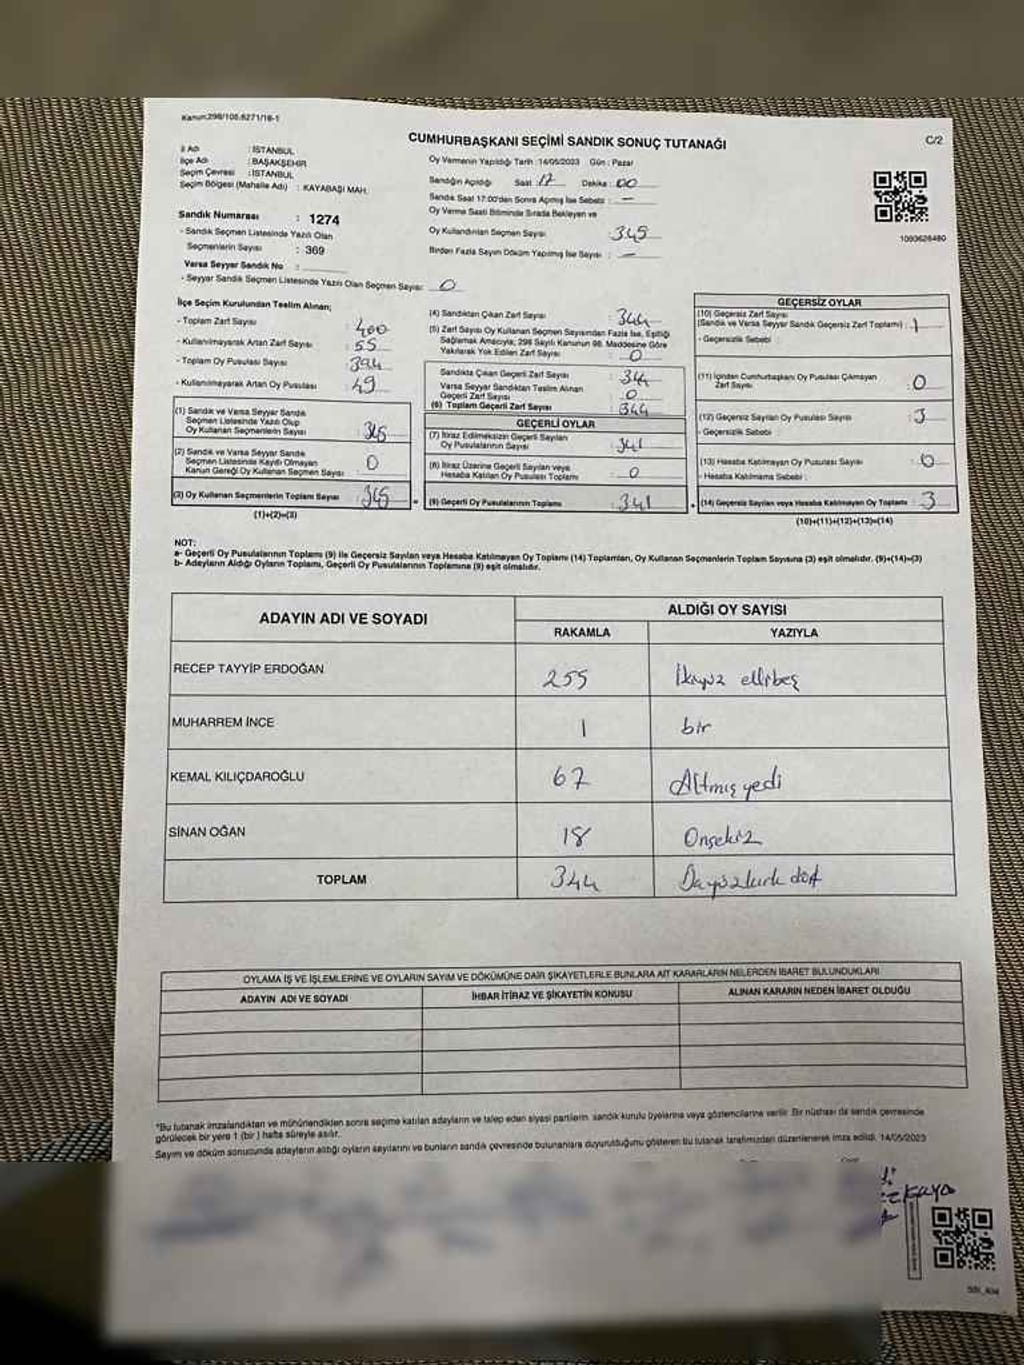 Kanun:298/105.6271/18-1
CUMHURBAŞKANI SEÇİMİ SANDIK SONUÇ TUTANAĞI
C/2
İl Adı : İSTANBUL
İlçe Adı : BAŞAKŞEHİR
Seçim Çevresi : İSTANBUL
Seçim Bölgesi (Mahalle Adı) : KAYABAŞI MAH.
Sandık Numarası : 1274
- Sandık Seçmen Listesinde Yazılı Olan
Seçmenlerin Sayısı : 369
Varsa Seyyar Sandık No :
- Seyyar Sandık Seçmen Listesinde Yazılı Olan Seçmen Sayısı: 0
Oy Vermenin Yapıldığı Tarih : 14/05/2023 Gün : Pazar
Sandığın Açıldığı Saat : 17 Dakika : 00
Sandık Saat 17:00'den Sonra Açmış İse Sebebi : —
Oy Verme Saati Bitiminde Sırada Bekleyen ve
Oy Kullandırılan Seçmen Sayısı : 345
Birden Fazla Sayım Döküm Yapılmış İse Sayısı : —
1093626480
İlçe Seçim Kurulundan Teslim Alınan;
- Toplam Zarf Sayısı : 400
- Kullanılmayarak Artan Zarf Sayısı : 55
- Toplam Oy Pusulası Sayısı : 394
- Kullanılmayarak Artan Oy Pusulası : 49
(1) Sandık ve Varsa Seyyar Sandık
Seçmen Listesinde Yazılı Olup
Oy Kullanan Seçmenlerin Sayısı : 345
(2) Sandık ve Varsa Seyyar Sandık
Seçmen Listesinde Kaydı Olmayan
Kanun Gereği Oy Kullanan Seçmen Sayısı : 0
(3) Oy Kullanan Seçmenlerin Toplam Sayısı : 345
(1)+(2)=(3)
(4) Sandıktan Çıkan Zarf Sayısı : 344
(5) Zarf Sayısı Oy Kullanan Seçmen Sayısından Fazla İse, Eşitliği
Sağlamak Amacıyla; 298 Sayılı Kanunun 98. Maddesine Göre
Yakılarak Yok Edilen Zarf Sayısı : 0
Sandıkta Çıkan Geçerli Zarf Sayısı : 344
Varsa Seyyar Sandıktan Teslim Alınan
Geçerli Zarf Sayısı : 0
(6) Toplam Geçerli Zarf Sayısı : 344
GEÇERLİ OYLAR
(7) İtiraz Edilmeksizin Geçerli Sayılan
Oy Pusulalarının Sayısı : 341
(8) İtiraz Üzerine Geçerli Sayılan veya
Hesaba Katılan Oy Pusulası Toplamı : 0
(9) Geçerli Oy Pusulalarının Toplamı : 341
GEÇERSİZ OYLAR
(10) Geçersiz Zarf Sayısı
(Sandık ve Varsa Seyyar Sandık Geçersiz Zarf Toplamı) : 1
- Geçersizlik Sebebi :
(11) İçinden Cumhurbaşkanı Oy Pusulası Çıkmayan
Zarf Sayısı : 0
(12) Geçersiz Sayılan Oy Pusulası Sayısı : 3
- Geçersizlik Sebebi :
(13) Hesaba Katılmayan Oy Pusulası Sayısı : 0
- Hesaba Katılmama Sebebi :
(14) Geçersiz Sayılan veya Hesaba Katılmayan Oy Toplamı : 3
(10)+(11)+(12)+(13)=(14)
NOT:
a- Geçerli Oy Pusulalarının Toplamı (9) ile Geçersiz Sayılan veya Hesaba Katılmayan Oy Toplamı (14) Toplamları, Oy Kullanan Seçmenlerin Toplam Sayısına (3) eşit olmalıdır. (9)+(14)=(3)
b- Adayların Aldığı Oyların Toplamı, Geçerli Oy Pusulalarının Toplamına (9) eşit olmalıdır.
ADAYIN ADI VE SOYADI
ALDIĞI OY SAYISI
RAKAMLA YAZIYLA
RECEP TAYYİP ERDOĞAN 255 İkiyüz ellibeş
MUHARREM İNCE 1 bir
KEMAL KILIÇDAROĞLU 67 Altmış yedi
SİNAN OĞAN 18 Onsekiz
TOPLAM 344
OYLAMA İŞ VE İŞLEMLERİNE VE OYLARIN SAYIM VE DÖKÜMÜNE DAİR ŞİKAYETLERLE BUNLARA AİT KARARLARIN NELERDEN İBARET BULUNDUKLARI
ADAYIN ADI VE SOYADI İHBAR İTİRAZ VE ŞİKAYETİN KONUSU ALINAN KARARIN NEDEN İBARET OLDUĞU
*Bu tutanak imzalandıktan ve mühürlendikten sonra seçime katılan adayların ve talep eden siyasi partilerin sandık kurulu üyelerine veya gözlemcilerine verilir. Bir nüshası da sandık çevresinde
görülecek bir yere 1 (bir) hafta süreyle asılır.
Sayım ve döküm sonucunda adayların aldığı oyların sayılarını ve bunların sandık çevresinde bulunanlara duyurulduğunu gösteren bu tutanak tarafımızdan düzenlenerek imza edildi. 14/05/2023